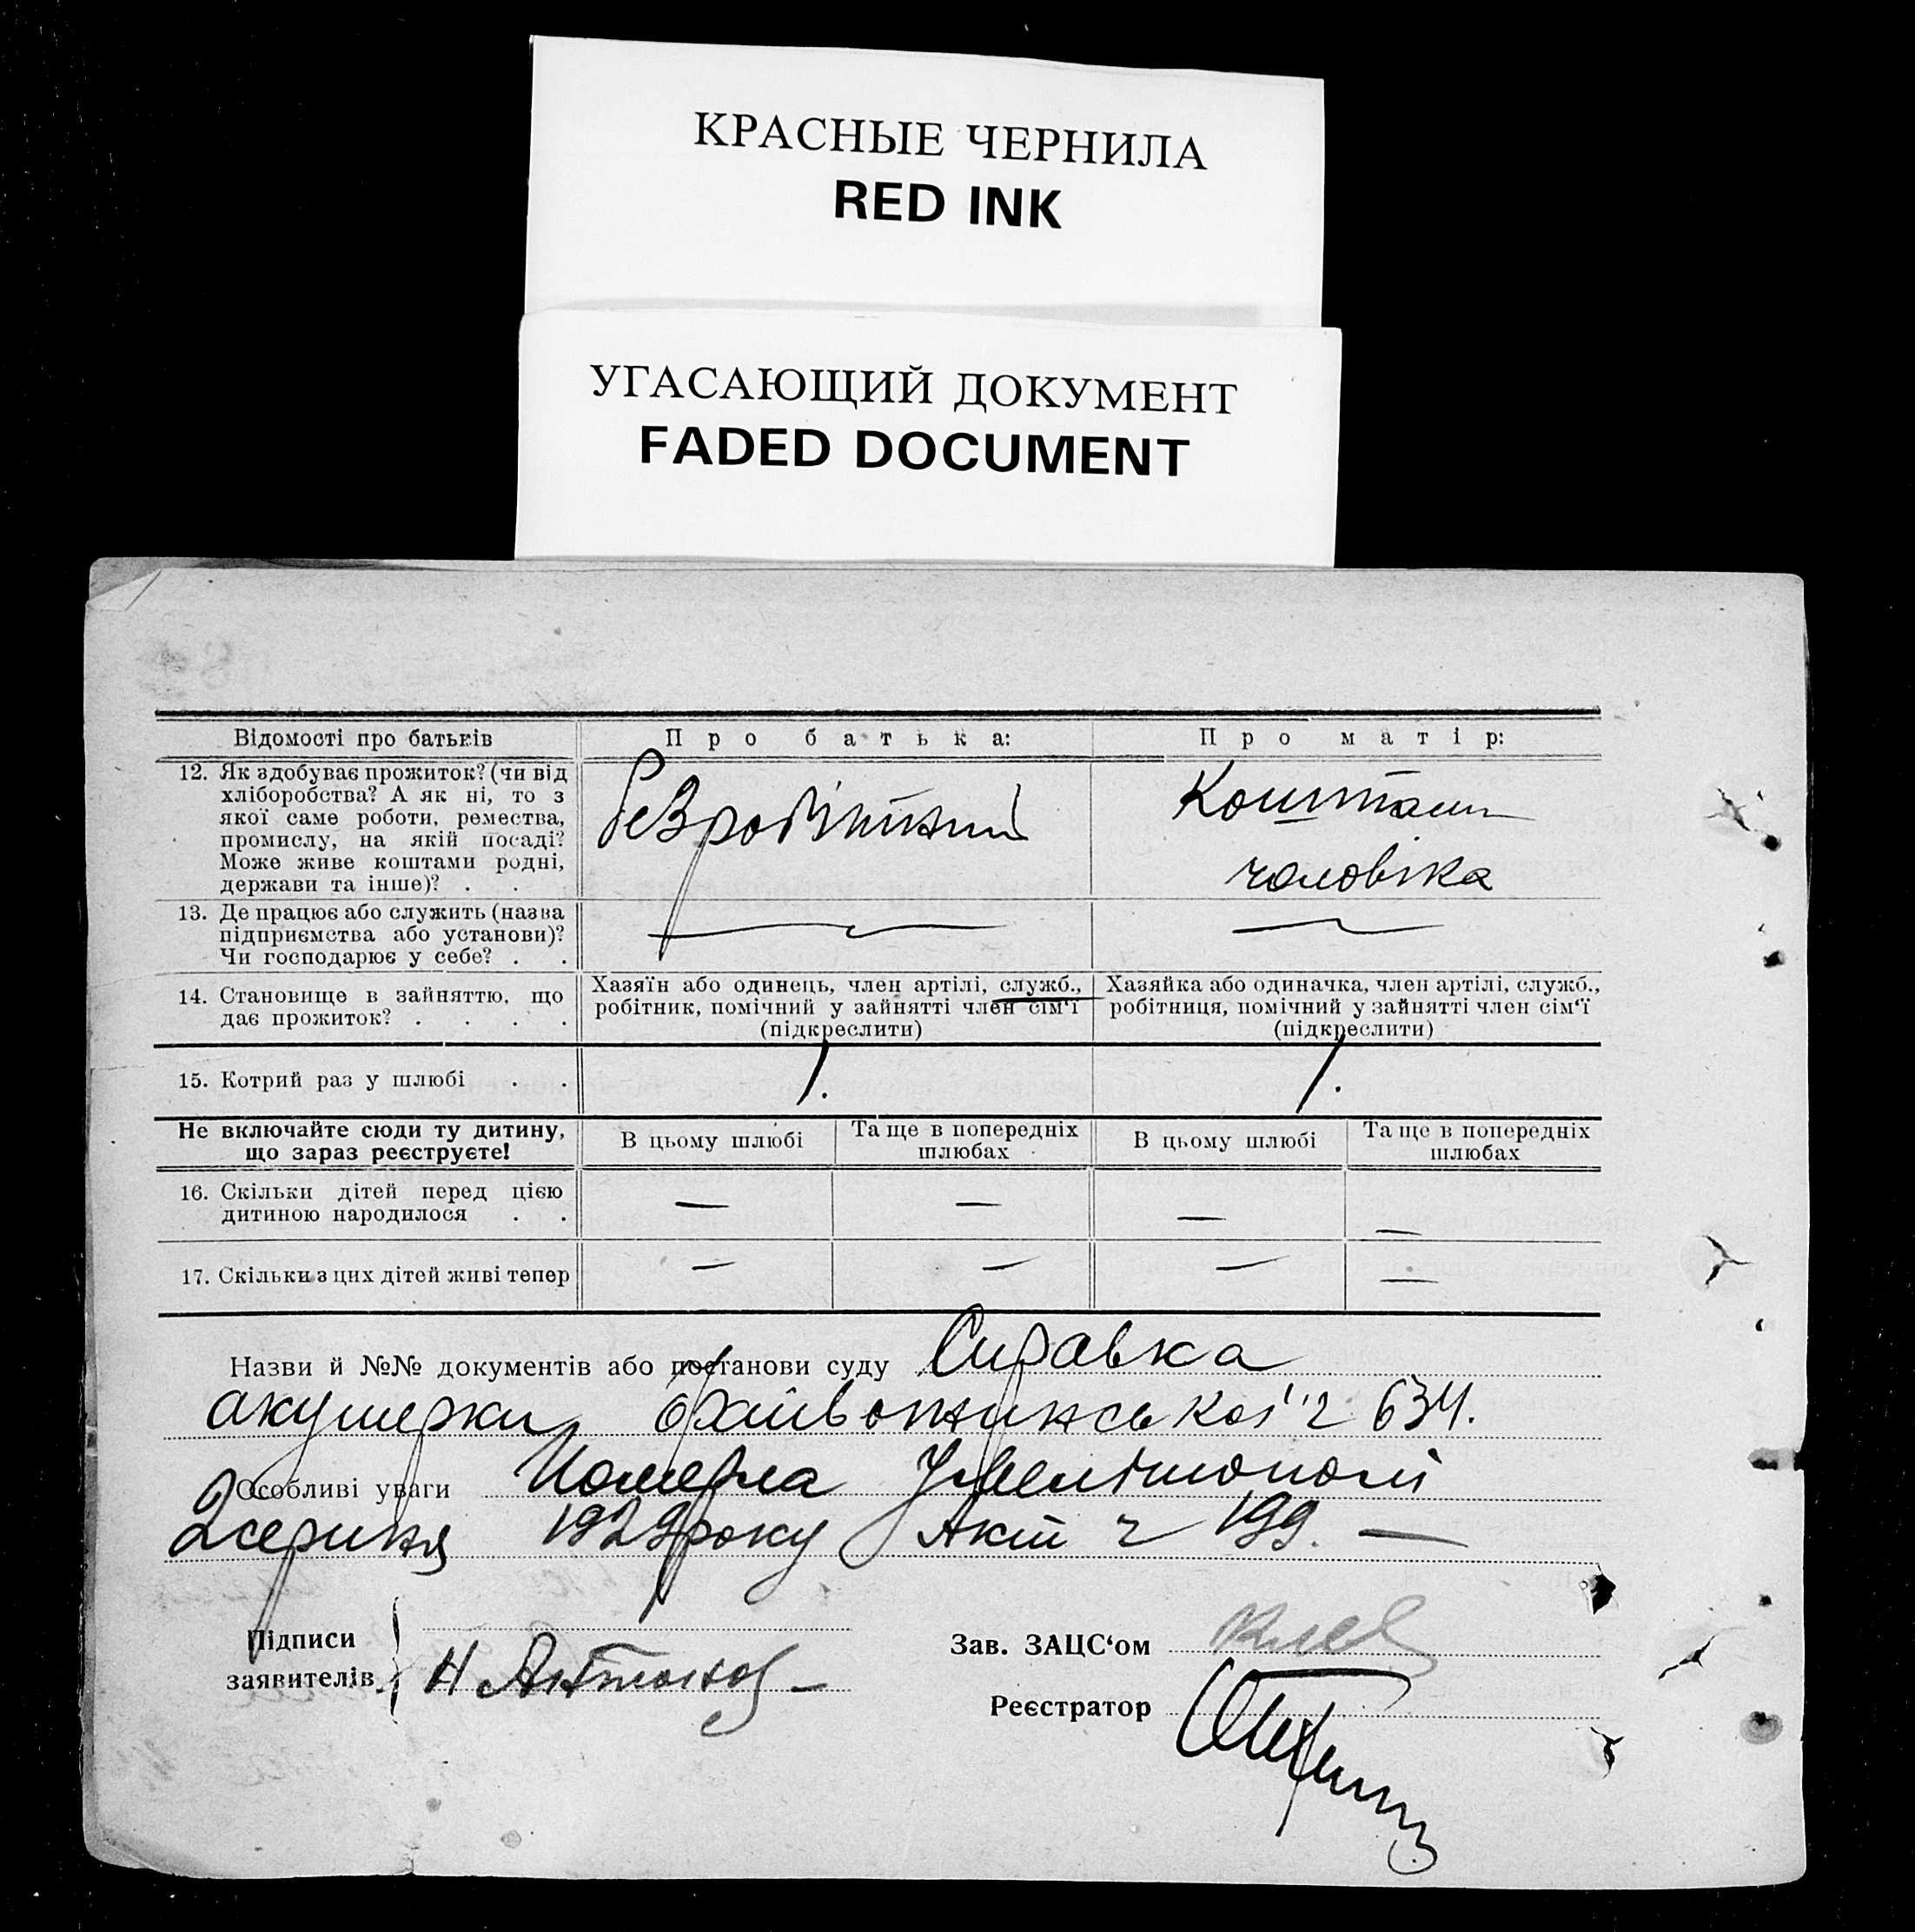 КРАСНЫЕ ЧЕРНИЛА
RED INK
УГАСАЮЩИЙ ДОКУМЕНТ
FADED DOCUMENT
Відомості про батьків
Про батька:
Про матір:
12. Як здобуває прожиток? (чи від
хліборобства? А як ні, то з
якої саме роботи, ремества,
промислу, на якій посаді?
Може живе коштами родні,
держави та інше)? . .
безробітний
Коштами
чоловіка
13. Де працює або служить (назва
підприємства або установи)?
Чи господарює у себе? . .
—
—
14. Становище в зайняттю, що
дає прожиток? . . . .
Хазяїн або одинець, член артілі, служб.,
робітник, помічний у зайнятті член сім‘ї
(підкреслити)
Хазяйка або одиначка, член артілі, служб.,
робітниця, помічний у зайнятті член сім‘ї
(підкреслити)
15. Котрий раз у шлюбі . .
1.
1.
Не включайте сюди ту дитину,
що зараз реєструєте!
В цьому шлюбі
Та ще в попередніх
шлюбах
В цьому шлюбі
Та ще в попередніх
шлюбах
16. Скільки дітей перед цією
дитиною народилося . .
—
—
—
—
17. Скільки з цих дітей живі тепер
—
—
—
—
Назви й №№ документів або постанови суду Справка
акушерки ч 634.
Особливі уваги Померла у Мелітополі
2 серпня 1929 року Акт ч 199. —
Підписи
заявителів
Н Антонов
Зав. ЗАЦС‘ом
Реєстратор